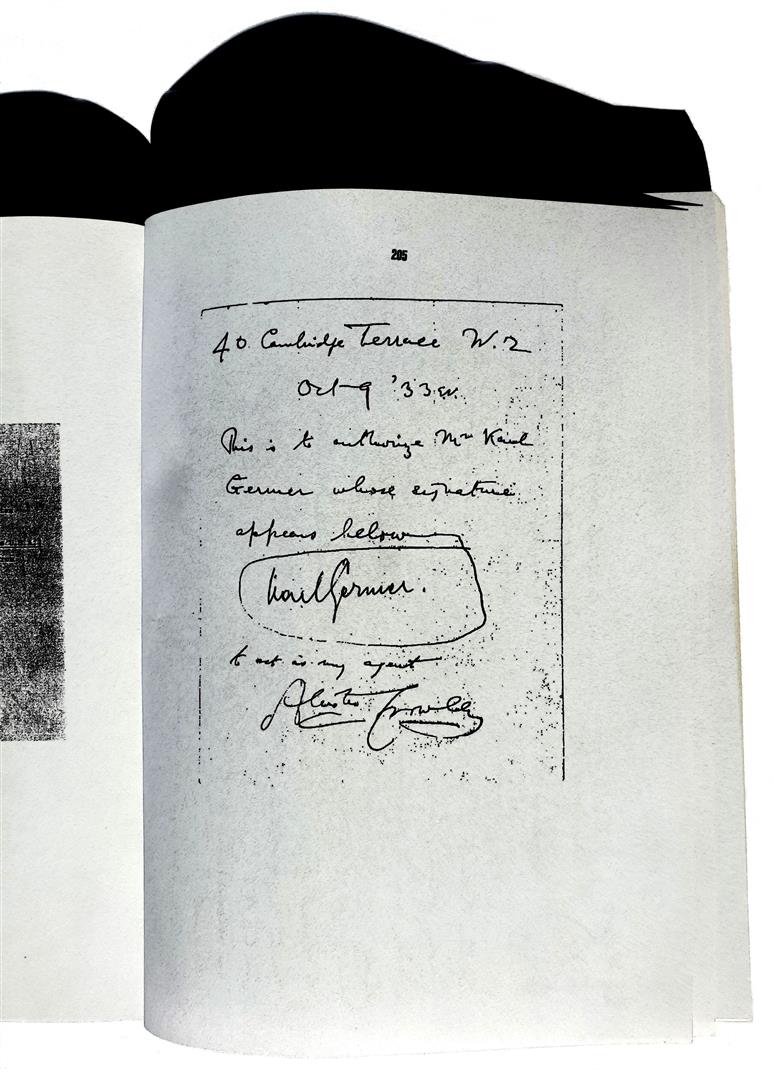 205
40 Cambridge Terrace W.2
Oct 9 '33 e.v.
This is to authorize Mr Karl
Germer whose signature
appears below
Karl Germer.
to act as my agent
Aleister Crowley